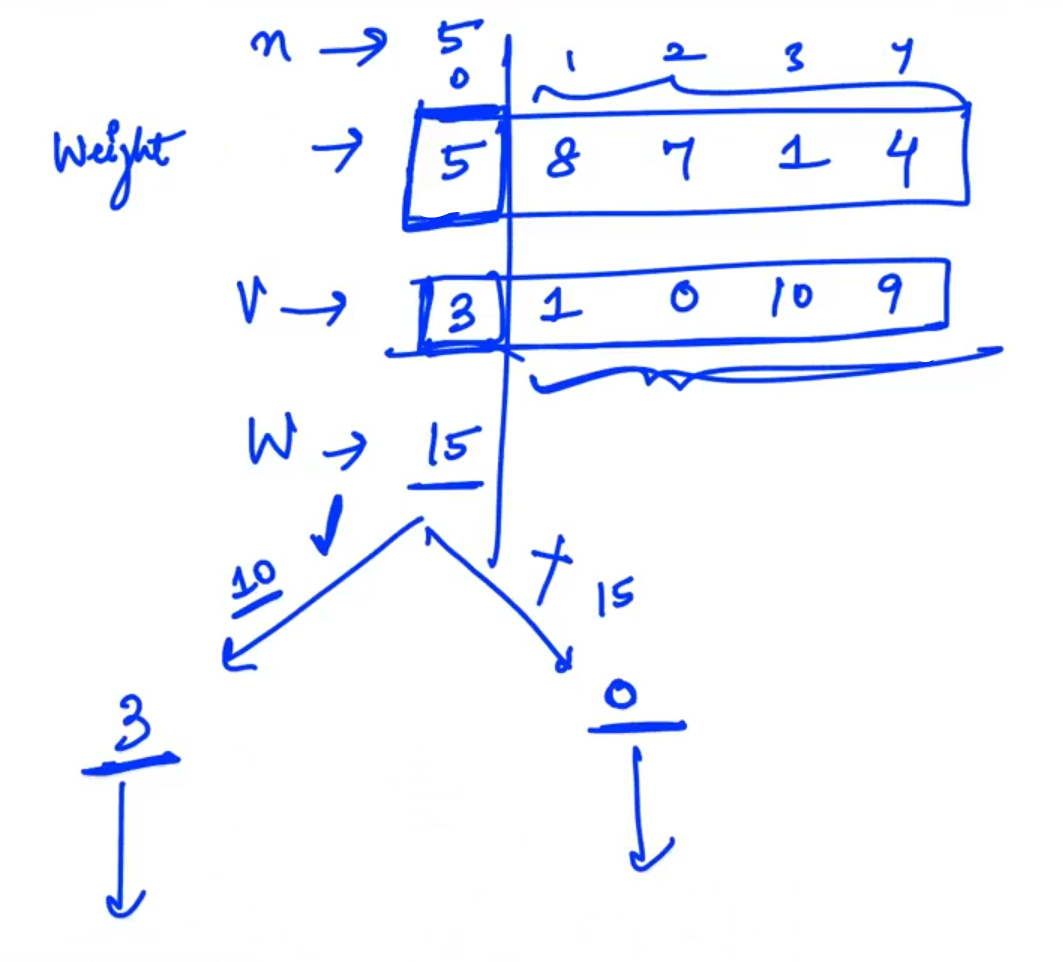 n → 5
0 1 2 3 4
Weight → 5 8 7 1 4
V → 3 1 0 10 9
W → 15
10 15
3 0